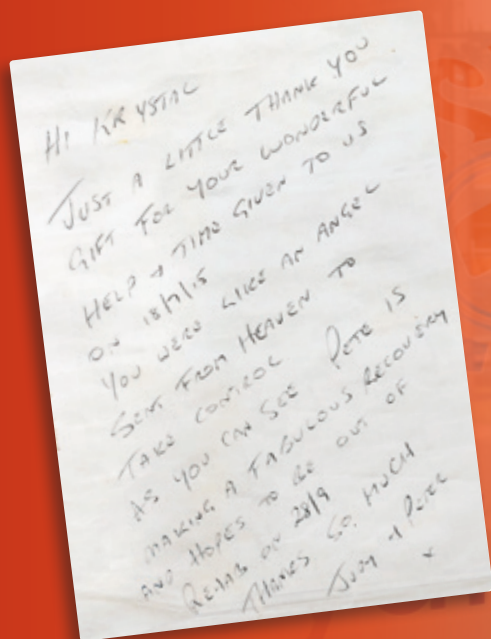 HI KRYSTAL
JUST A LITTLE THANK YOU
GIFT FOR YOUR WONDERFUL
HELP & TIME GIVEN TO US
ON 18/7/15
YOU WERE LIKE AN ANGEL
SENT FROM HEAVEN TO
TAKE CONTROL
AS YOU CAN SEE PETE IS
MAKING A FABULOUS RECOVERY
AND HOPES TO BE OUT OF
REHAB ON 28/9
THANKS SO MUCH
JUDY & PETER
x